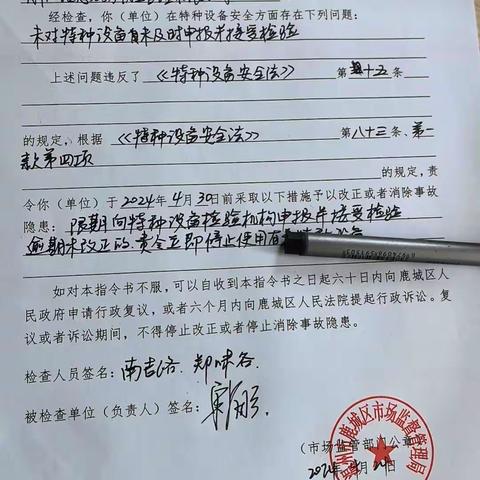 经检查，你（单位）在特种设备安全方面存在下列问题：
未对特种设备自未及时申报并接受检验
上述问题违反了《特种设备安全法》第四十五条
的规定，根据《特种设备安全法》第八十三条、第一
款第四项
的规定，责
令你（单位）于2024年4月30日前采取以下措施予以改正或者消除事故
隐患：限期向特种设备检验机构申报并接受检验
逾期未改正的，责令立即停止使用有
如对本指令书不服，可以自收到本指令书之日起六十日内向鹿城区人
民政府申请行政复议，或者六个月内向鹿城区人民法院提起行政诉讼。复
议或者诉讼期间，不得停止改正或者停止消除事故隐患。
检查人员签名：
被检查单位（负责人）签名：
鹿城区市场监督管理局
（市场监管部门公章）
2024年4月 日